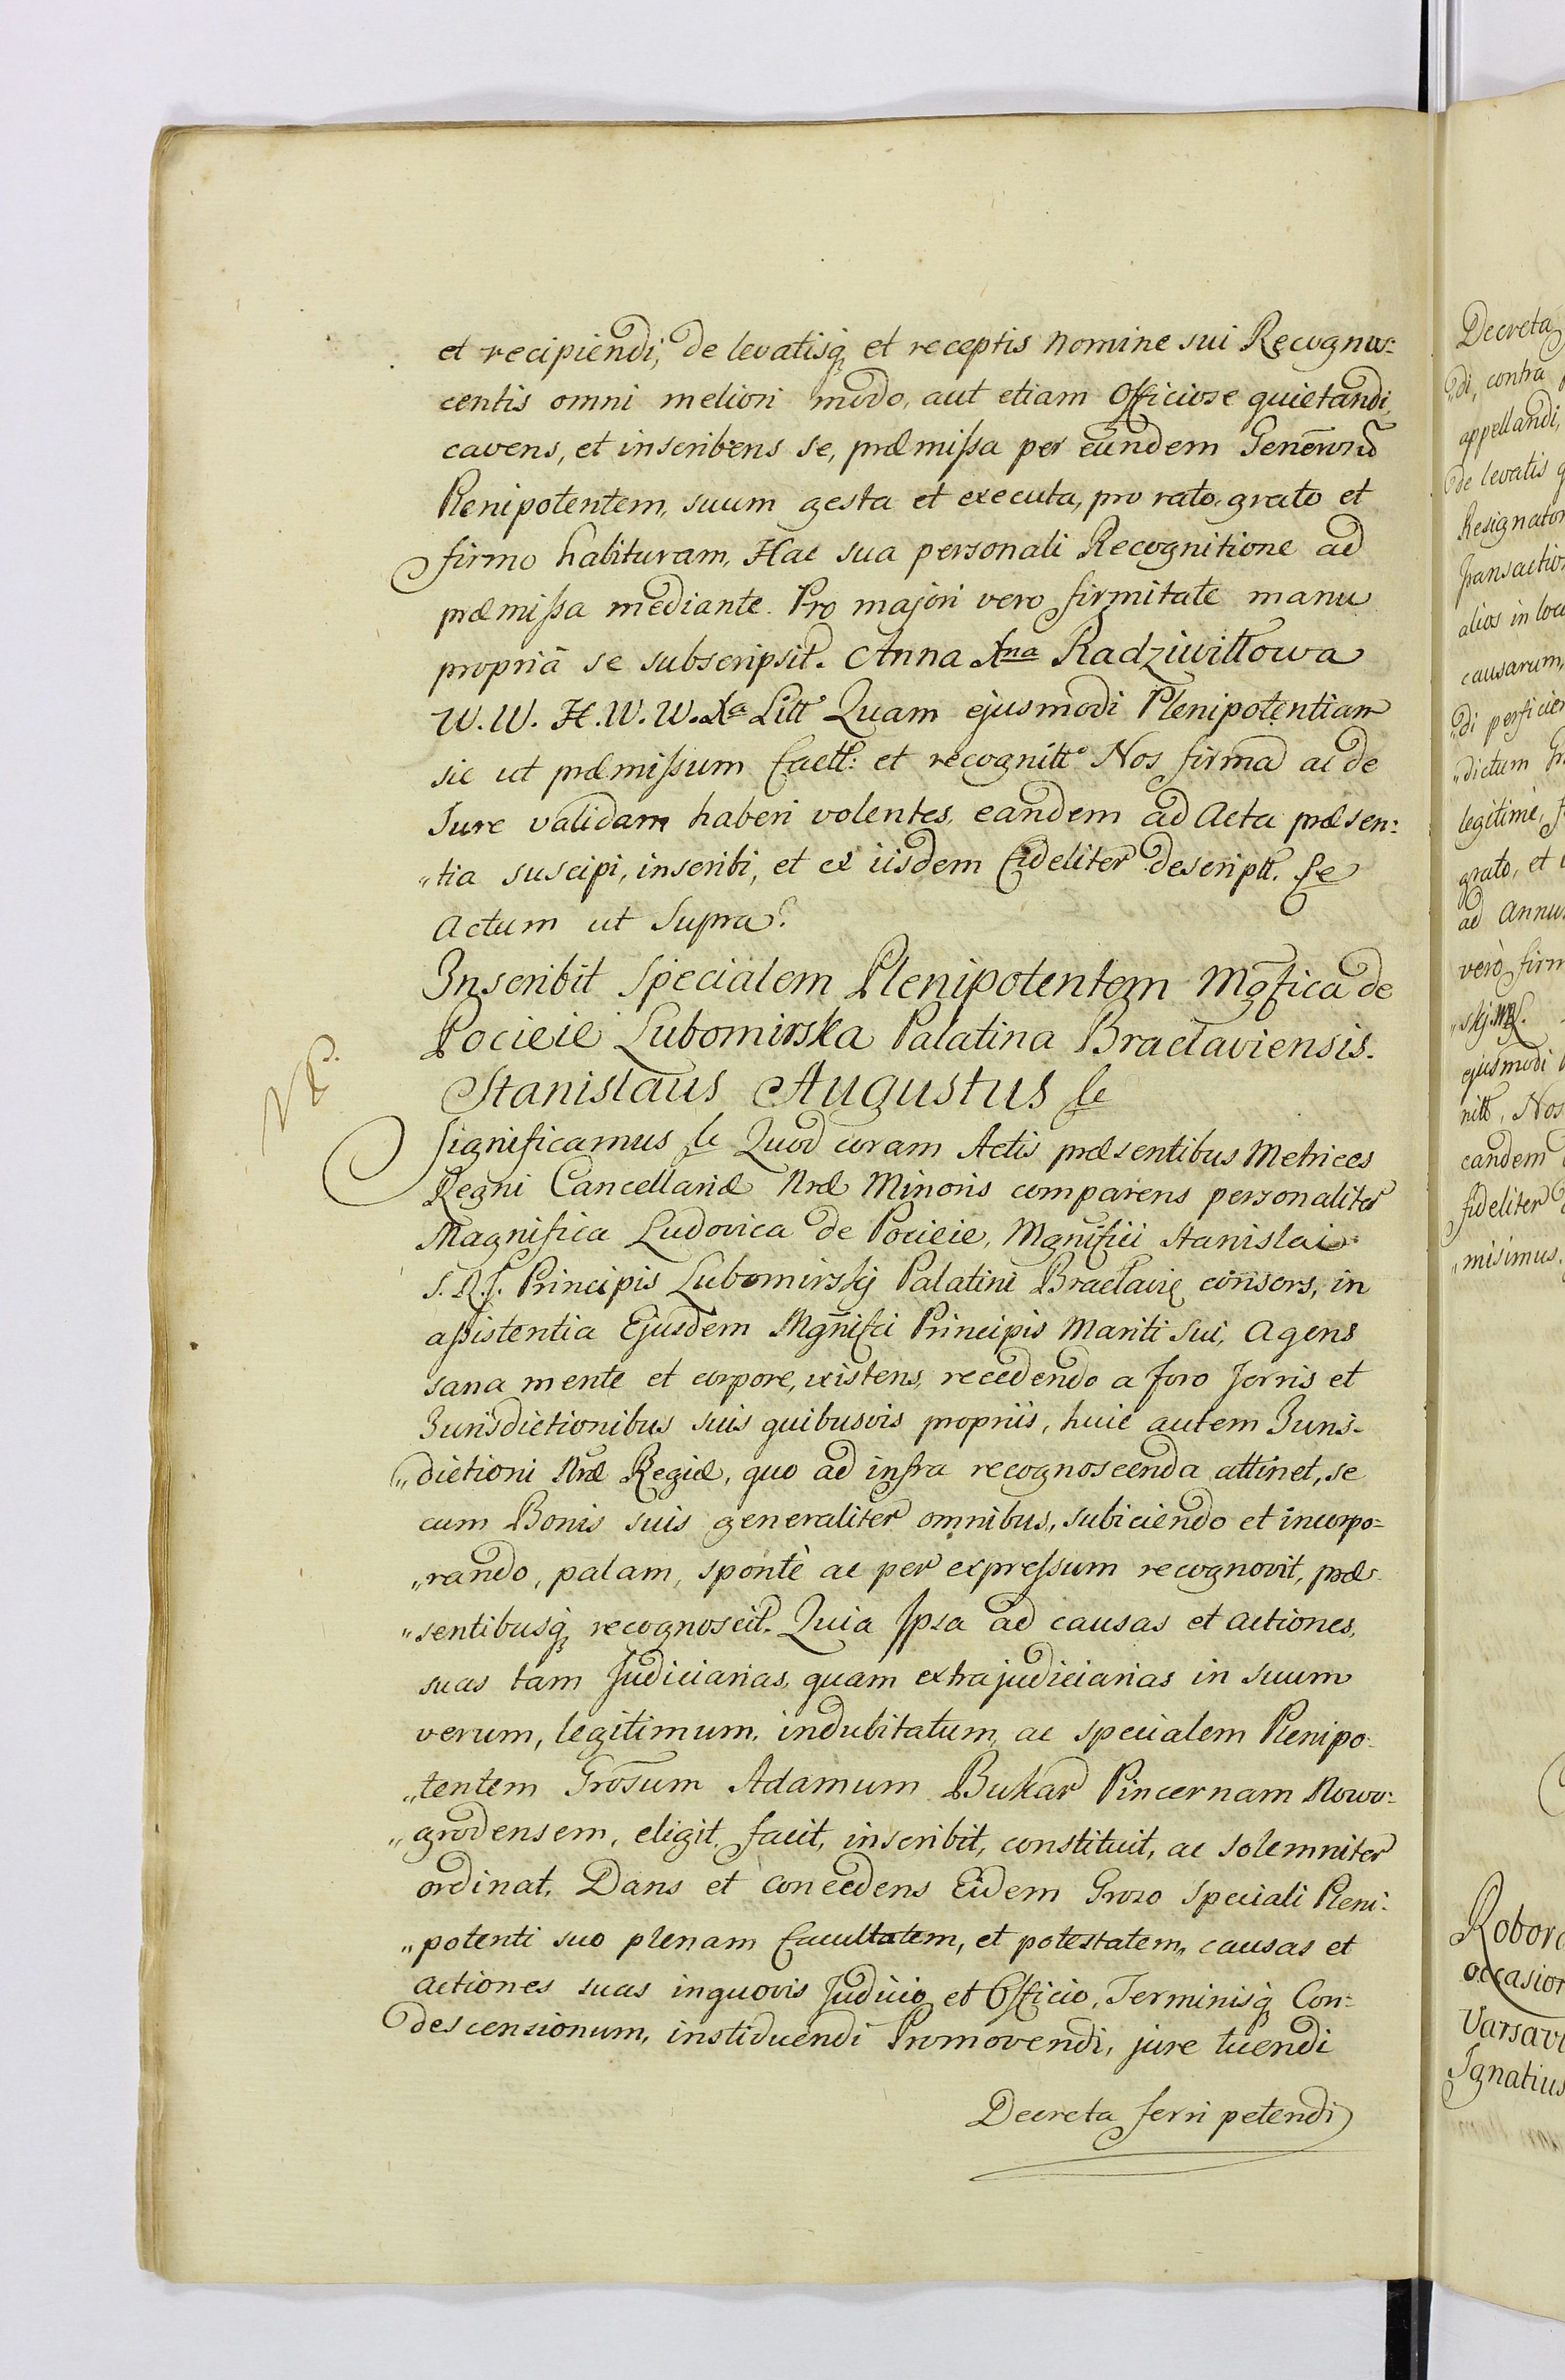 et recipiendi, de levatisq́ et receptis nomine sui Recognos:
centis omni meliori modo, aut etiam Officiose quietandi,
cavens, et inscribens se, præmissa per eundem Generosū
Plenipotentem, suum gesta et executa, pro rato, grato et
firmo habituram, Hac sua personali Recognitione ad
præmissa mediante. Pro majori vero firmitate manu
propriā se subscripsit. Anna Xna Radziwiłłowa
W. W. H. W. W. Xa Litt Quam ejusmodi Plenipotentiam
sic ut præmissum factt: et recognitt Nos firmā ac de
Jure validam haberi volentes, eandem ad Acta præsen:
„tia suscipi, inscribi, et ex iisdem fideliter descriptt. &c
Actum ut supra.
Inscribit Specialem Plenipotentem Mgfica de
Pocieie Lubomirska Palatina Braclaviensis.
NB.
Stanislaus Augustus &c
Significamus &c Quod coram Actis præsentibus Metrices
Regni Cancellariæ Nræ Minoris comparens personaliter
Magnifica Ludovica de Pocieie, Mgnifici Stanislai
S. R. J. Principis Lubomirskj Palatini Braclavię consors, in
assistentia Ejusdem Mgnifci Principis Mariti sui, Agens
sana mente et corpore, existens, recedendo a foro Terris et
Jurisdictionibus suis quibusvis propriis, huic autem Juris-
„dictioni Nræ Regiæ, quo ad infra recognoscenda attinet, se
cum Bonis suis generaliter omnibus, subiciendo et incorpo=
„rando, palam, spontè ac per expressum recognovit, præ-
„sentibusq́ recognoscit. Quia Ipsa ad causas et actiones,
suas tam Judiciarias, quam extrajudiciarias in suum
verum, legitimum, indubitatum, ac specialem Plenipo-
„tentem Grosum Adamum Bukar Pincernam Nowo:
„grodensem, eligit, facit, inscribit, constituit, ac solemniter
ordinat, Dans et concedens Eidem Groso Speciali Pleni-
„potenti suo plenam facultatem, et potestatem, causas et
actiones suas inquovis Judicio et Officio, Terminisq́ Con:
descensionum, instiduendi Promovendi, jure tuendi
Decreta ferri petendi
Decreta
„di, contra
appellandi,
de levatis
Resignator
Transactio
alios in loc
causarum,
„di perficien
„dictum
legitime,
grato, et
ad Annu
verò firm
ejusmodi
nitt, Nos
eandem
fideliter
„misimus.
Robor
occasion
Varsavi
Ignatius